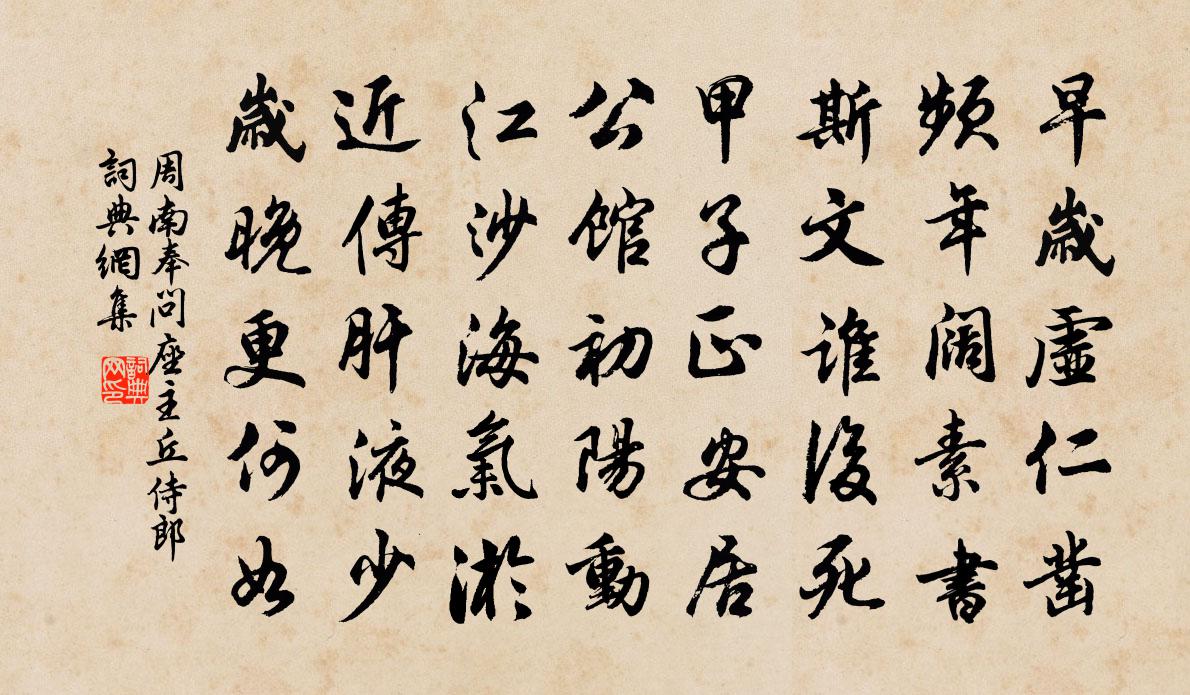 早歲虛仁凿
頻年闊素書
斯文誰後死
甲子正安居
公館初陽動
江沙海氣淤
近傳肝液少
歲晚更何如
周南奉問座主丘侍郎
詞典網集
詞典网印